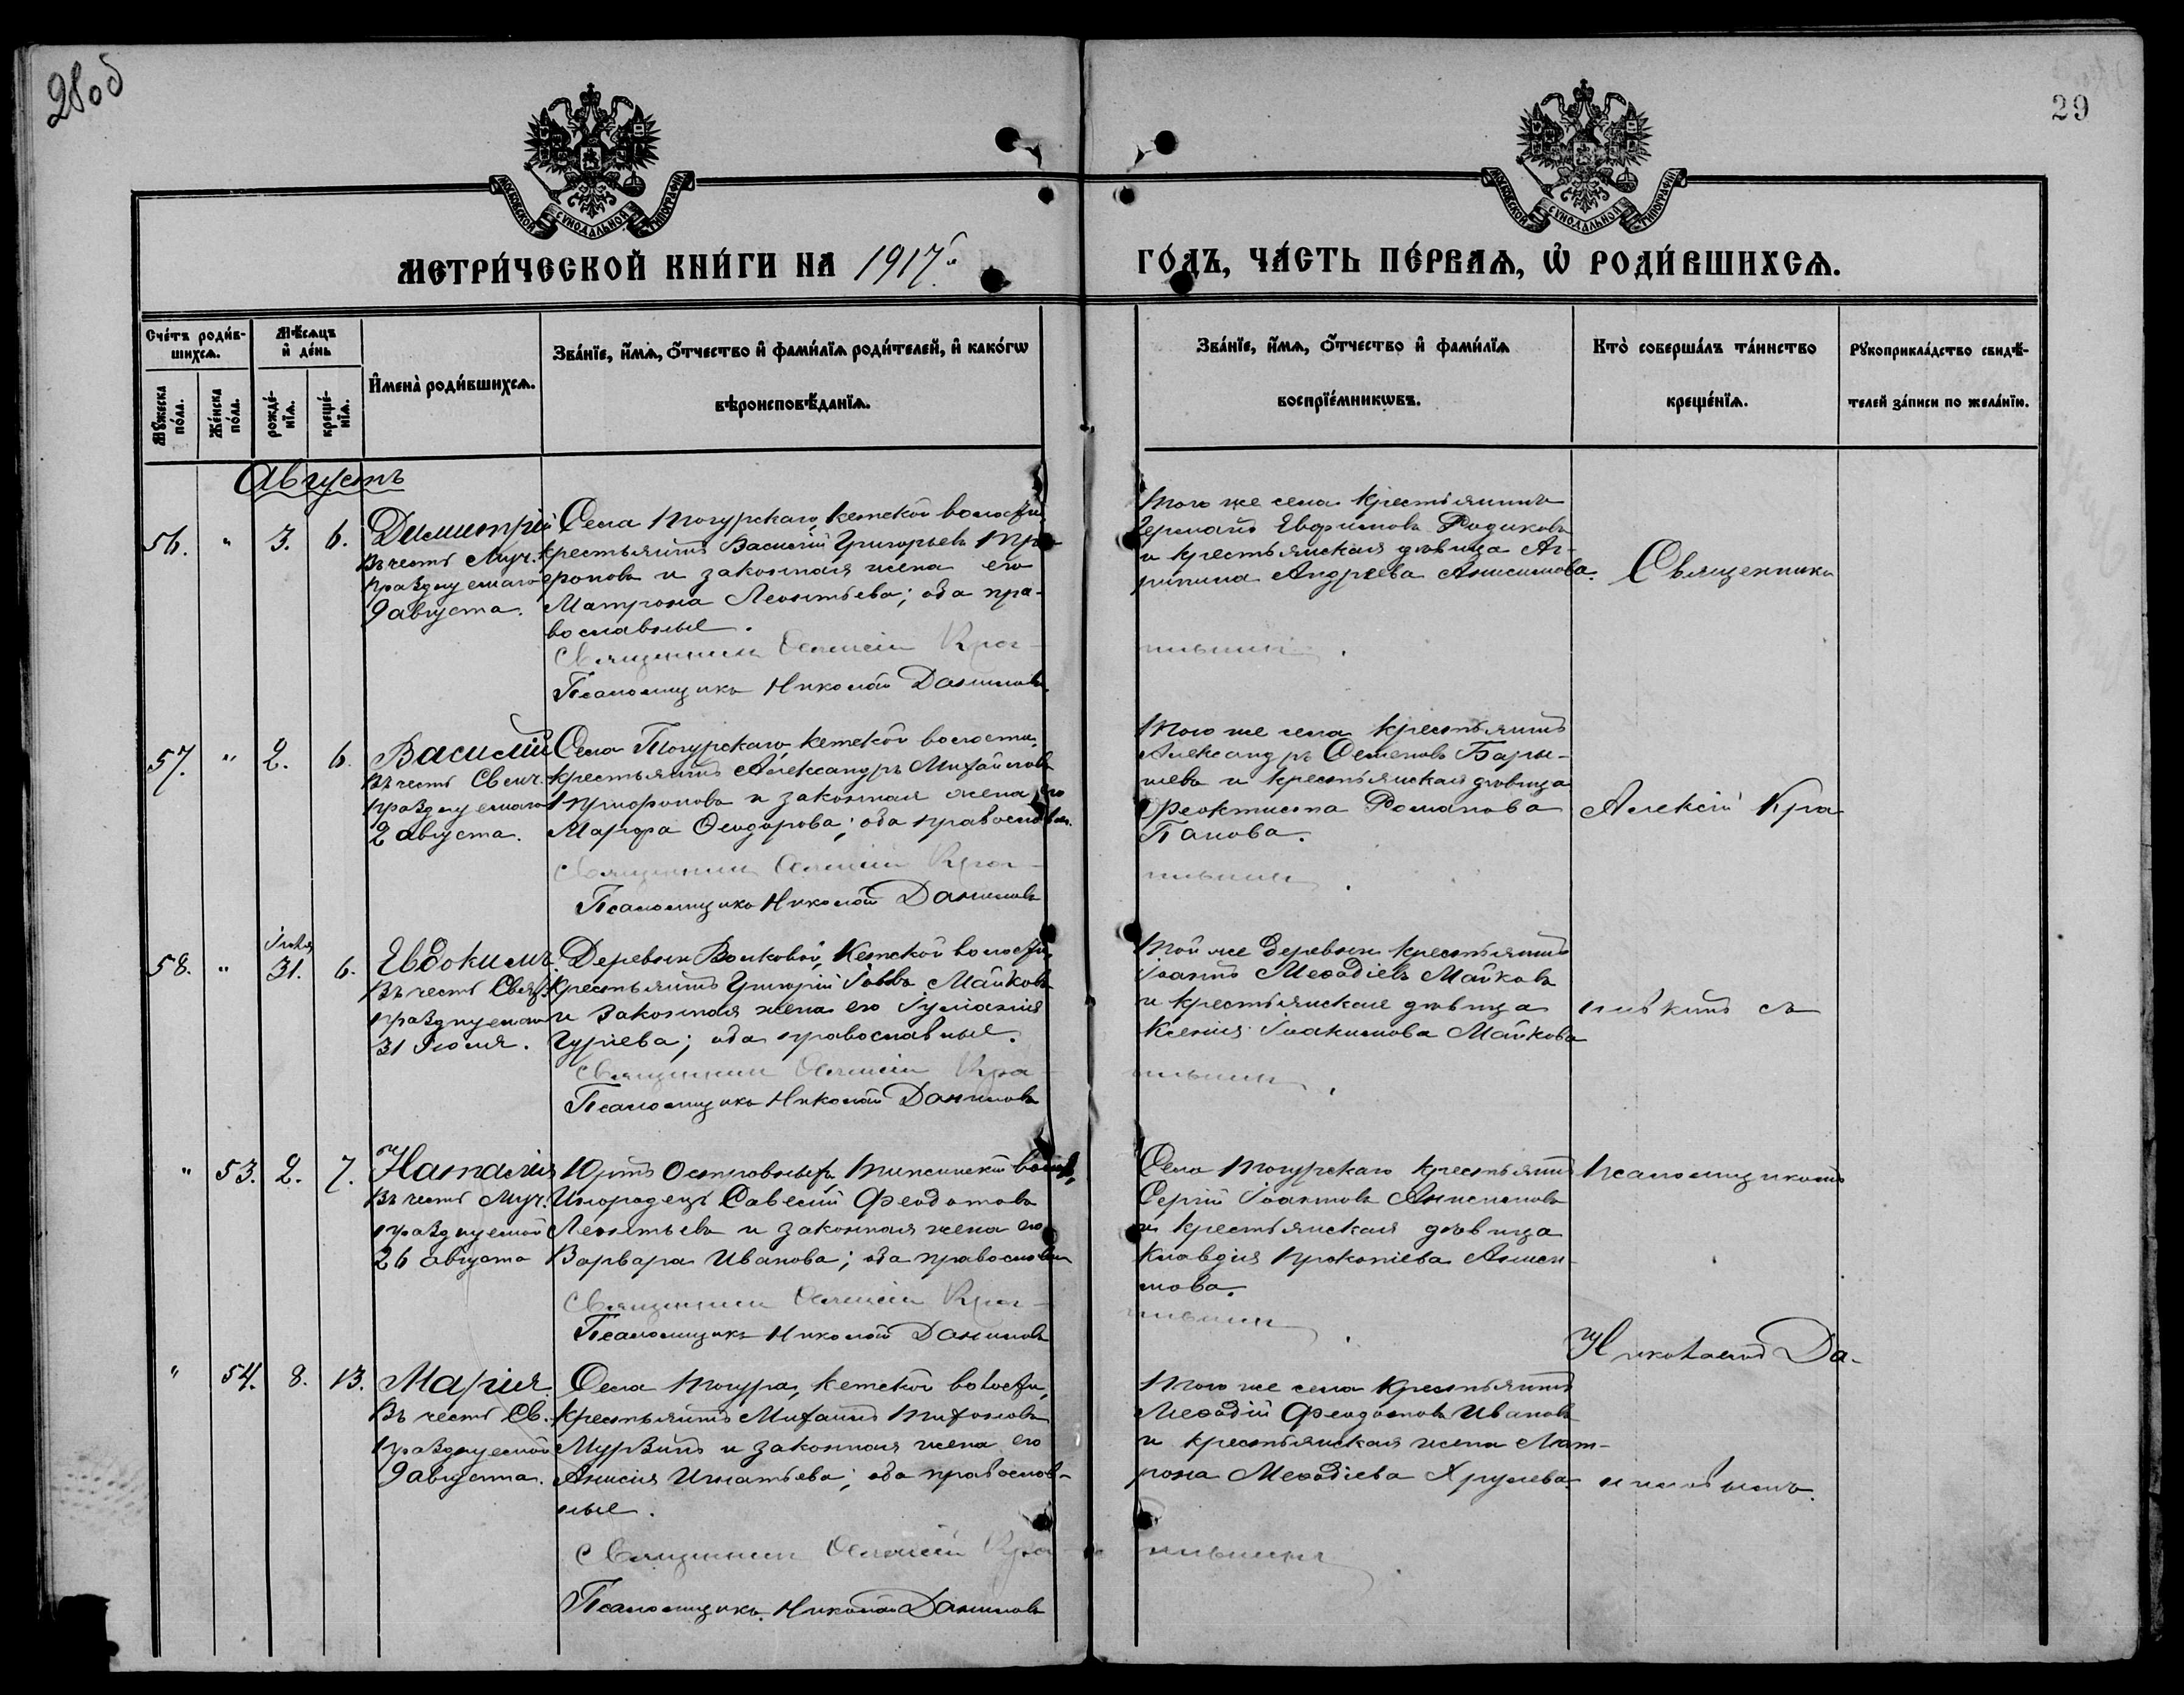 28об
29
МОСКОВСКОЙ СѴНОДАЛЬНОЙ ТИПОГРАФІИ
МОСКОВСКОЙ СѴНОДАЛЬНОЙ ТИПОГРАФІИ
МЕТРИ́ЧЕСКОЙ КНИ́ГИ НА 1917 г. ГО́ДЪ, ЧА́СТЬ ПЕ́РВАѦ, Ѡ҆ РОДИ́ВШИХСѦ.
Сче́тъ роди́в-
шихсѧ.
Мꙋ́жеска по́ла.
Же́нска по́ла.
Мѣ́сѧцъ
и҆ де́нь
рожде́-
нїѧ.
креще́-
нїѧ.
И҆мена̀ роди́вшихсѧ.
Зва́нїе, и҆́мѧ, ѻ҆́тчество и҆ фами́лїѧ роди́телей, и҆ како́гѡ
вѣроисповѣ́данїѧ.
Зва́нїе, и҆́мѧ, ѻ҆́тчество и҆ фами́лїѧ
воспрїе́мникѡвъ.
Кто̀ соверша́лъ та́инство
креще́нїѧ.
Рꙋкоприкла́дство свидѣ́-
телей за́писи по жела́нїю.
Августъ
56. " 3. 6. Димитрій
Въ честь Муч.
празднуемаго
9 августа.
Села Тогурскаго, Кетской волости,
крестьянинъ Василій Григорьевъ Три-
фоновъ и законная жена его
Матрона Леонтьева; оба пра-
вославные.
Священникъ Алексій Кра-
пивинъ.
Псаломщикъ Николай Даниловъ
Того же села крестьянинъ
Германъ Евфимовъ Родиковъ
и крестьянская дѣвица Аг-
рипина Андреева Анисимова.
Священникъ
57. " 2. 6. Василій
Въ честь Свящ.
празднуемаго
2 августа.
Села Тогурскаго, Кетской волости,
крестьянинъ Александръ Михайловъ
Трифоновъ и законная жена его
Марфа Ѳеодорова; оба православн.
Священникъ Алексій Кра-
пивинъ.
Псаломщикъ Николай Даниловъ
Того же села крестьянинъ
Александръ Семеновъ Бары-
шевъ и крестьянская дѣвица
Феоктиста Романова
Панова.
Алексій Кра
58. " Іюля 31. 6. Евдокимъ.
Въ честь Свят.
празднуемаго
31 Іюля.
Деревни Волковой, Кетской волости,
крестьянинъ Григорій Іовъ Майковъ
и законная жена его Іуліанія
Гуріева; оба православные.
Священникъ Алексій Кра
пивинъ.
Псаломщикъ Николай Даниловъ
Той же деревни крестьянинъ
Іоаннъ Меѳодіевъ Майковъ
и крестьянская дѣвица
Ксенія Іоакимова Майкова
съ
" 53. 2. 7. Наталія
Въ честь Муч.
празднуемой
26 августа
Юртъ Островныхъ
Инородецъ Савелій Феодотовъ
Леонтьевъ и законная жена его
Варвара Иванова; оба православн
Священникъ Алексій Кра-
пивинъ.
Псаломщикъ Николай Даниловъ
Села Тогурскаго крестьянинъ
Сергій Іоанновъ Анисимовъ
и крестьянская дѣвица
Клавдія Прокопіева Аниси-
мова.
псаломщикомъ
Николаемъ Да-
" 54. 8. 13. Марія.
Въ честь Св.
празднуемой
9 августа.
Села Тогура, Кетской волости,
крестьянинъ Михаилъ Тихоновъ
Мурзинъ и законная жена его
Анисія Игнатьева; оба православ-
ные.
Священникъ Алексій Кра-
пивинъ
Псаломщикъ Николай Даниловъ
Того же села крестьянинъ
Меѳодій Феодотовъ Ивановъ
и крестьянская жена Мат-
рона Меѳодіева Хрулева.
ниловымъ.